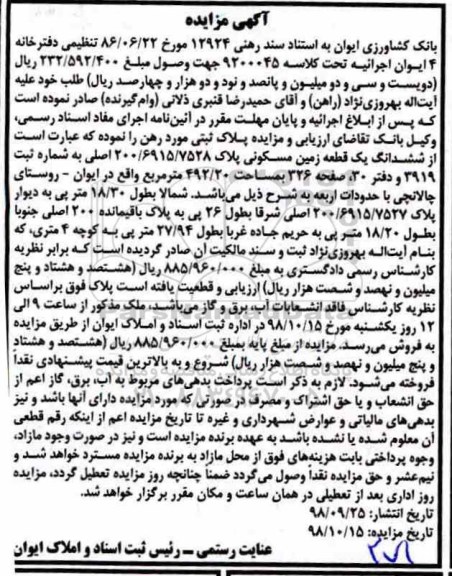 آگهی مزایده
بانک کشاورزی ایوان به استناد سند رهنی ۱۲۹۲۴ مورخ ۸۶/۰۶/۲۲ تنظیمی دفترخانه
۴ ایوان اجرائیه تحت کلاسه ۹۲۰۰۰۴۵ جهت وصول مبلغ ۲۳۲/۵۹۲/۴۰۰ ریال
(دویست و سی و دو میلیون و پانصد و نود و دو هزار و چهارصد ریال) طلب خود علیه
آیت‌اله بهروزی‌نژاد (راهن) و آقای حمیدرضا قنبری ذلانی (وام‌گیرنده) صادر نموده است
که پس از ابلاغ اجرائیه و پایان مهلت مقرر در آئین‌نامه اجرای مفاد اسناد رسمی،
وکیل بانک تقاضای ارزیابی و مزایده پلاک ثبتی مورد رهن را نموده که عبارت است
از ششدانگ یک قطعه زمین مسکونی پلاک ۲۰۰/۶۹۱۵/۷۵۲۸ اصلی به شماره ثبت
۳۹۱۹ و دفتر ۳۰، صفحه ۳۲۶ بمساحت ۴۹۲/۲۰ مترمربع واقع در ایوان - روستای
چالانچی با حدودات اربعه به شرح ذیل می‌باشد. شمالا بطول ۱۸/۳۰ متر پی به دیوار
پلاک ۲۰۰/۶۹۱۵/۷۵۲۷ اصلی شرقا بطول ۲۶ پی به پلاک باقیمانده ۲۰۰ اصلی جنوبا
بطول ۱۸/۲۰ متر پی به حریم جاده غربا بطول ۲۷/۹۴ متر پی به کوچه ۴ متری، که
بنام آیت‌اله بهروزی‌نژاد ثبت و سند مالکیت آن صادر گردیده است که برابر نظریه
کارشناس رسمی دادگستری به مبلغ ۸۸۵/۹۶۰/۰۰۰ ریال (هشتصد و هشتاد و پنج
میلیون و نهصد و شصت هزار ریال) ارزیابی و قطعیت یافته است پلاک فوق براساس
نظریه کارشناس فاقد انشعابات آب، برق و گاز می‌باشد، ملک مذکور از ساعت ۹ الی
۱۲ روز یکشنبه مورخ ۹۸/۱۰/۱۵ در اداره ثبت اسناد و املاک ایوان از طریق مزایده
به فروش می‌رسد. مزایده از مبلغ پایه بمبلغ ۸۸۵/۹۶۰/۰۰۰ ریال (هشتصد و هشتاد
و پنج میلیون و نهصد و شصت هزار ریال) شروع و به بالاترین قیمت پیشنهادی نقداً
فروخته می‌شود. لازم به ذکر است پرداخت بدهی‌های مربوط به آب، برق، گاز اعم از
حق انشعاب و یا حق اشتراک و مصرف در صورتی که مورد مزایده دارای آنها باشد و نیز
بدهی‌های مالیاتی و عوارض شهرداری و غیره تا تاریخ مزایده اعم از اینکه رقم قطعی
آن معلوم شده یا نشده باشد به عهده برنده مزایده است و نیز در صورت وجود مازاد،
وجوه پرداختی بابت هزینه‌های فوق از محل مازاد به برنده مزایده مسترد خواهد شد و
نیم‌عشر و حق مزایده نقداً وصول می‌گردد ضمناً چنانچه روز مزایده تعطیل گردد، مزایده
روز اداری بعد از تعطیلی در همان ساعت و مکان مقرر برگزار خواهد شد.
تاریخ انتشار: ۹۸/۰۹/۲۵
تاریخ مزایده: ۹۸/۱۰/۱۵
عنایت رستمی - رئیس ثبت اسناد و املاک ایوان